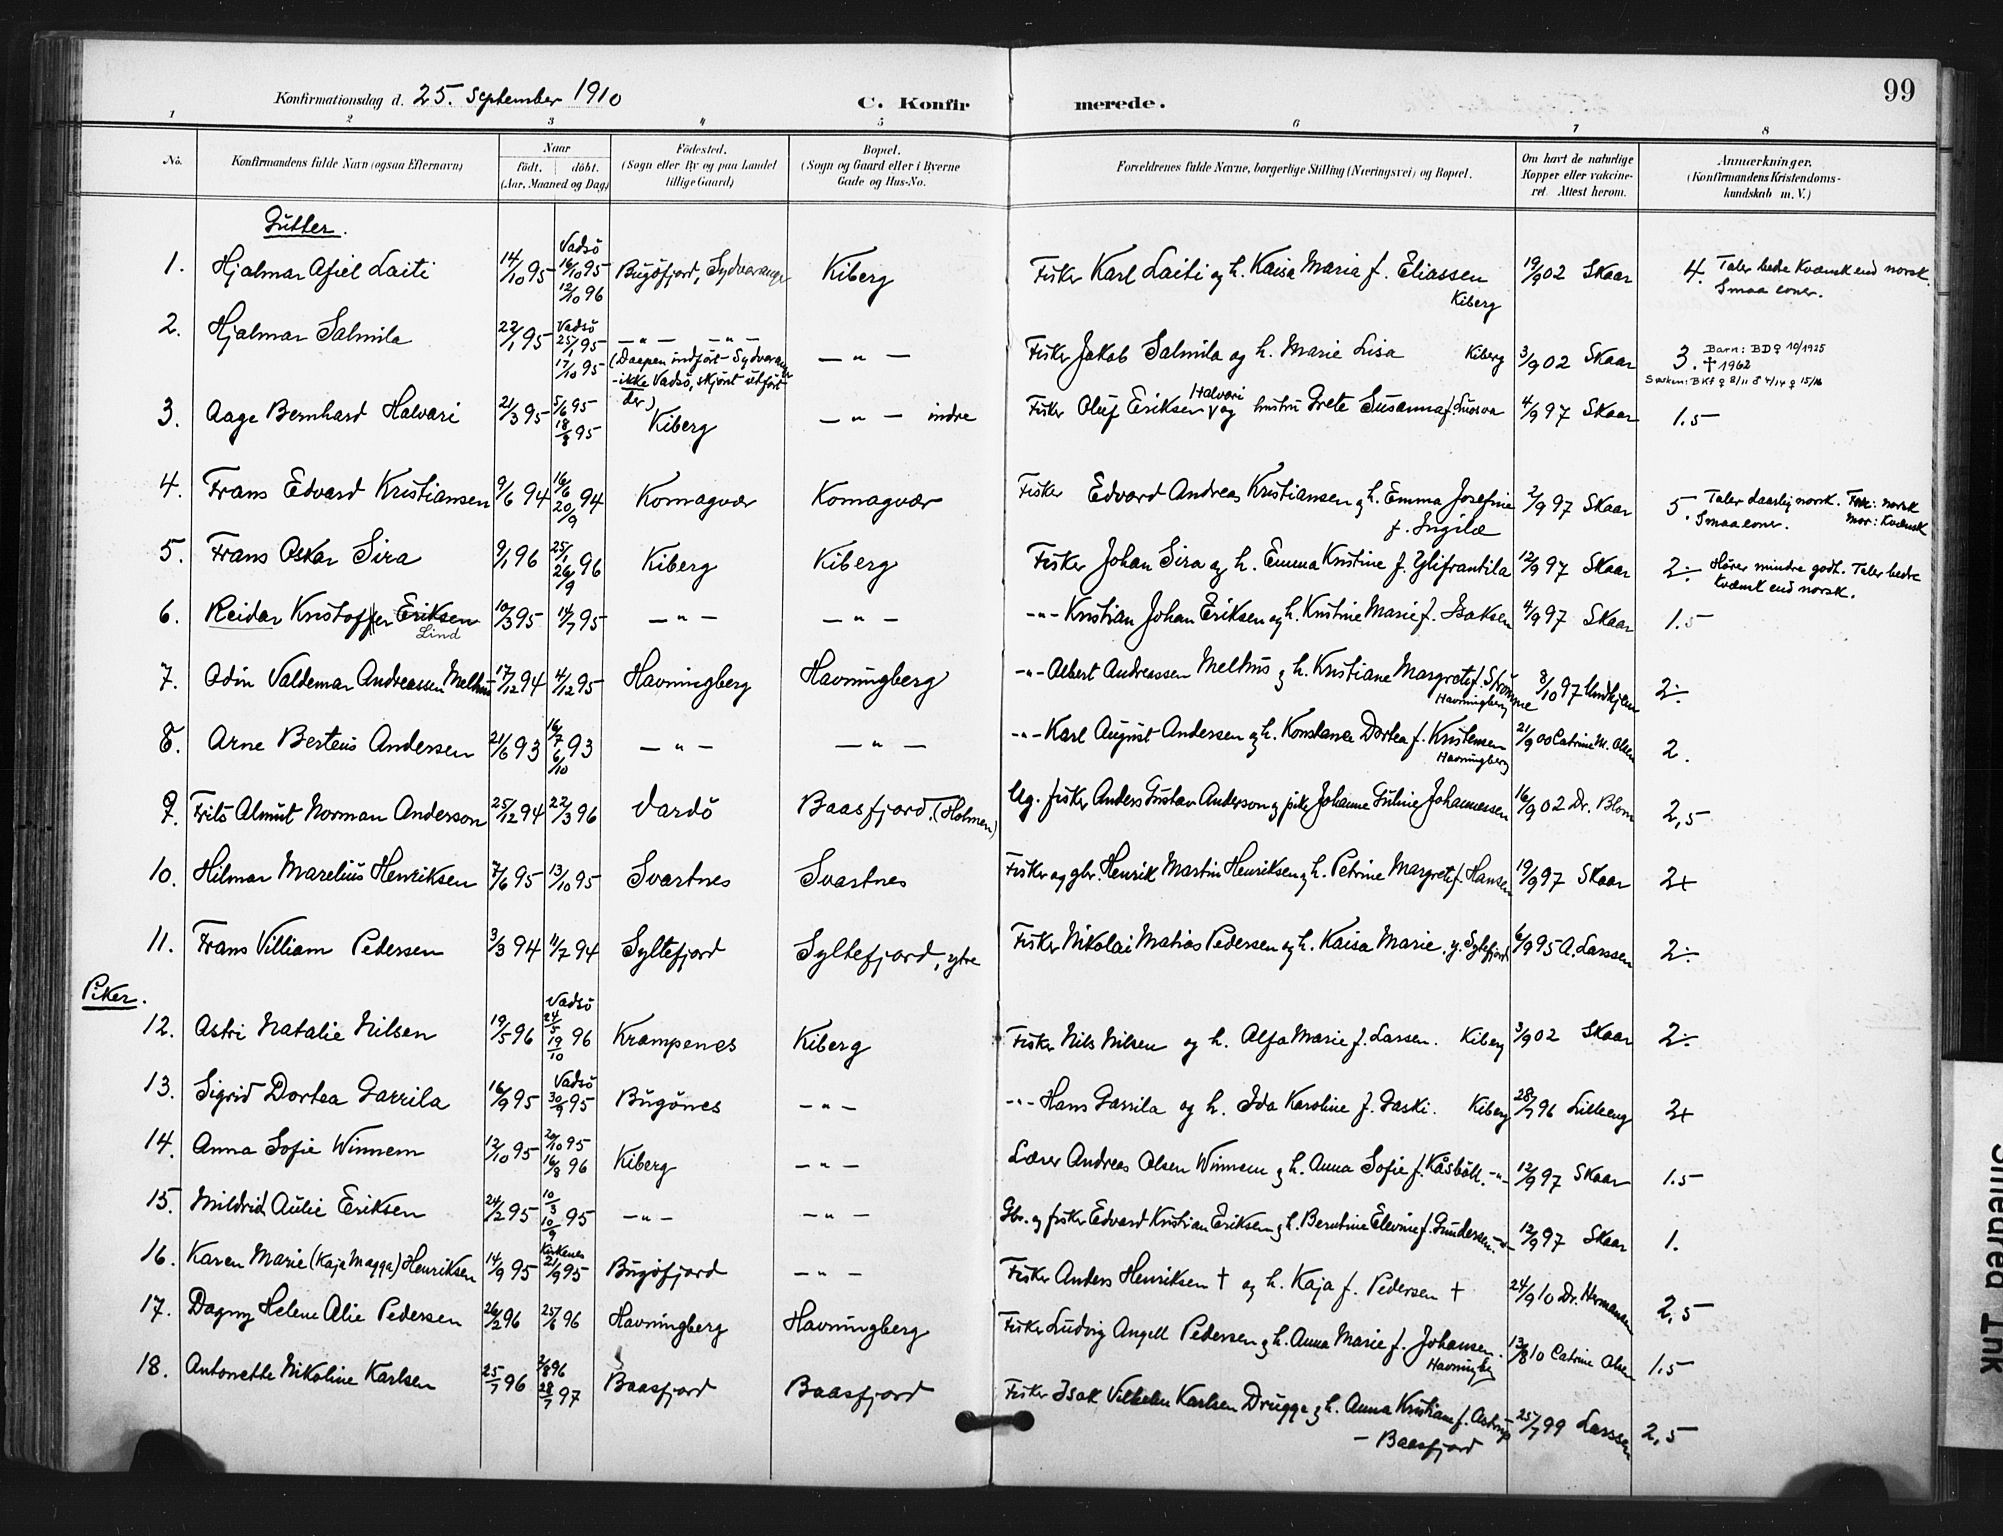 Konfirmationsdag d. 25. September 1910
C. Konfirmerede.
99
1 2 3 4 5 6 7 8
No.
Konfirmandens fulde Navn (ogsaa Efternavn)
Naar
født. | døbt.
(Aar, Maaned og Dag)
Födested.
(Sogn eller By og paa Landet
tillige Gaard)
Bopæl.
(Sogn og Gaard eller i Byerne
Gade og Hus-No.
Forældrenes fulde Navne, borgerlige Stilling (Næringsvei) og Bopæl.
Om havt de naturlige
Kopper eller vakcine-
ret. Attest herom.
Anmærkninger.
(Konfirmandens Kristendoms-
kundskab m. V.)
Gutter.
1. Hjalmar Afiel Laiti 14/10 95 Vadsö 16/10 95 12/10 96 Bugöfjord, Sydvaranger Kiberg Fisker Karl Laiti og h. Kaisa Maria f. Eliassen Kiberg 19/9 02 Skaar 4. Taler bedre Kvænsk end norsk. Smaa evner.
2. Hjalmar Salmila 22/1 95 Vadsö 25/1 95 17/10 95 —"— —"— (Daapen indført Sydvaranger ikke Vadsö, skjönt utfört der) —"— Fisker Jakob Salmila og h. Marie Lisa Kiberg 3/9 02 Skaar 3. Barn: BD♀ 10/1925 † 1962 Søsken: BKF ♀ 8/11 ♂ 4/14 ♀ 15/16
3. Aage Bernhard Halvari 21/3 95 5/6 95 18/8 95 Kiberg —"— indre Fisker Oluf Eriksen Halvari og hustru Grete Susanna f. Luosva 4/9 97 Skaar 1.5
4. Frans Edvard Kristiansen 9/6 94 16/6 20/9 94 Komagvær Komagvær Fisker Edvard Andreas Kristiansen og h. Emma Josefine f. Ingilæ 2/9 97 Skaar 5. Taler daarlig norsk. Far: norsk Mor: Kvænsk Smaa evner.
5. Frans Oskar Sira 9/1 96 25/1 26/9 96 Kiberg Kiberg Fisker Johan Sira og h. Emma Kristine f. Ylifrantila 12/9 97 Skaar 2÷ Hører mindre godt. Taler bedre Kvænsk end norsk.
6. Reidar Kristoffer Eriksen Lind 10/3 95 14/7 95 —"— —"— -"- Kristian Johan Eriksen og h. Kristine Marie f. Isaksen 4/9 97 Skaar 1.5
7. Odin Valdemar Andreassen Melhus 17/12 94 4/12 95 Havningberg Havningberg -"- Albert Andreassen Melhus og h. Kristiane Margrete f. Strömme Havningberg 8/10 97 2÷
8. Arne Berteus Andersen 21/6 93 16/7 6/10 93 —"— —"— -"- Karl August Andersen og h. Konstance Dortea f. Kristensen Havningberg 21/9 00 Catrine M. Olsen 2.
9. Frits Almut Norman Anderson 25/12 94 22/3 96 Vardö Baasfjord. (Holmen) Ug. fisker Anders Gustav Anderson og pike Johanne Guline Johannessen 16/9 02 Dr. Blom 2,5
10. Hilmar Marelius Henriksen 7/6 95 13/10 95 Svartnes Svartnes Fisker og gbr. Henrik Martin Henriksen og h. Petrine Margrete f. Hansen 19/9 97 Skaar 2+
11. Frans Villiam Pedersen 3/3 94 11/7 94 Syltefjord Syltefjord, ytre Fisker Nikolai Matias Pedersen og h. Kaisa Marie. y. Syltefjord 6/9 95 A. Larssen 2÷
Piker.
12. Astri Natalie Nilsen 19/5 96 Vadsö 24/5 19/10 96 Krampenes Kiberg Fisker Nils Nilsen og h. Alfa Marie f. Larsen. Kiberg 3/9 02 Skaar 2÷
13. Sigrid Dortea Garrila 16/9 95 Vadsö 30/9 95 Bugönes —"— -"- Hans Garrila og h. Ida Karoline f. Gaski. Kiberg 28/7 96 Lilleeng 2+
14. Anna Sofie Winnem 12/10 95 20/10 95 16/8 96 Kiberg —"— Lærer Andreas Olsen Winnem og h. Anna Sofie f. Kåsböll. -"- 12/9 97 Skaar 1.5
15. Mildrid Aulie Eriksen 24/2 95 10/3 10/9 95 —"— —"— Gbr. og fisker Edvard Kristian Eriksen og h. Berntine Elevine f. Gundersen. -"- 12/9 97 Skaar 1.
16. Karen Marie (Kaja Magga) Henriksen 14/9 95 Kirkenes 21/9 95 Bugöfjord —"— Fisker Anders Henriksen † og h. Kaja f. Pedersen † 24/9 10 Dr. Hermansen 2,5
17. Dagny Helene Alie Pedersen 26/2 96 25/6 96 Havningberg Havningberg Fisker Ludvig Angell Pedersen og h. Anna Marie f. Johansen. Havningberg 13/8 10 Catrine Olsen 1.5
18. Antonette Nikoline Karlsen 25/7 96 2/8 96 28/7 97 Baasfjord Baasfjord Fisker Isak Vilhelm Karlsen Drugge og h. Anna Kristiane f. Astrup — Baasfjord 25/7 99 Larssen 2,5
Smeared Ink